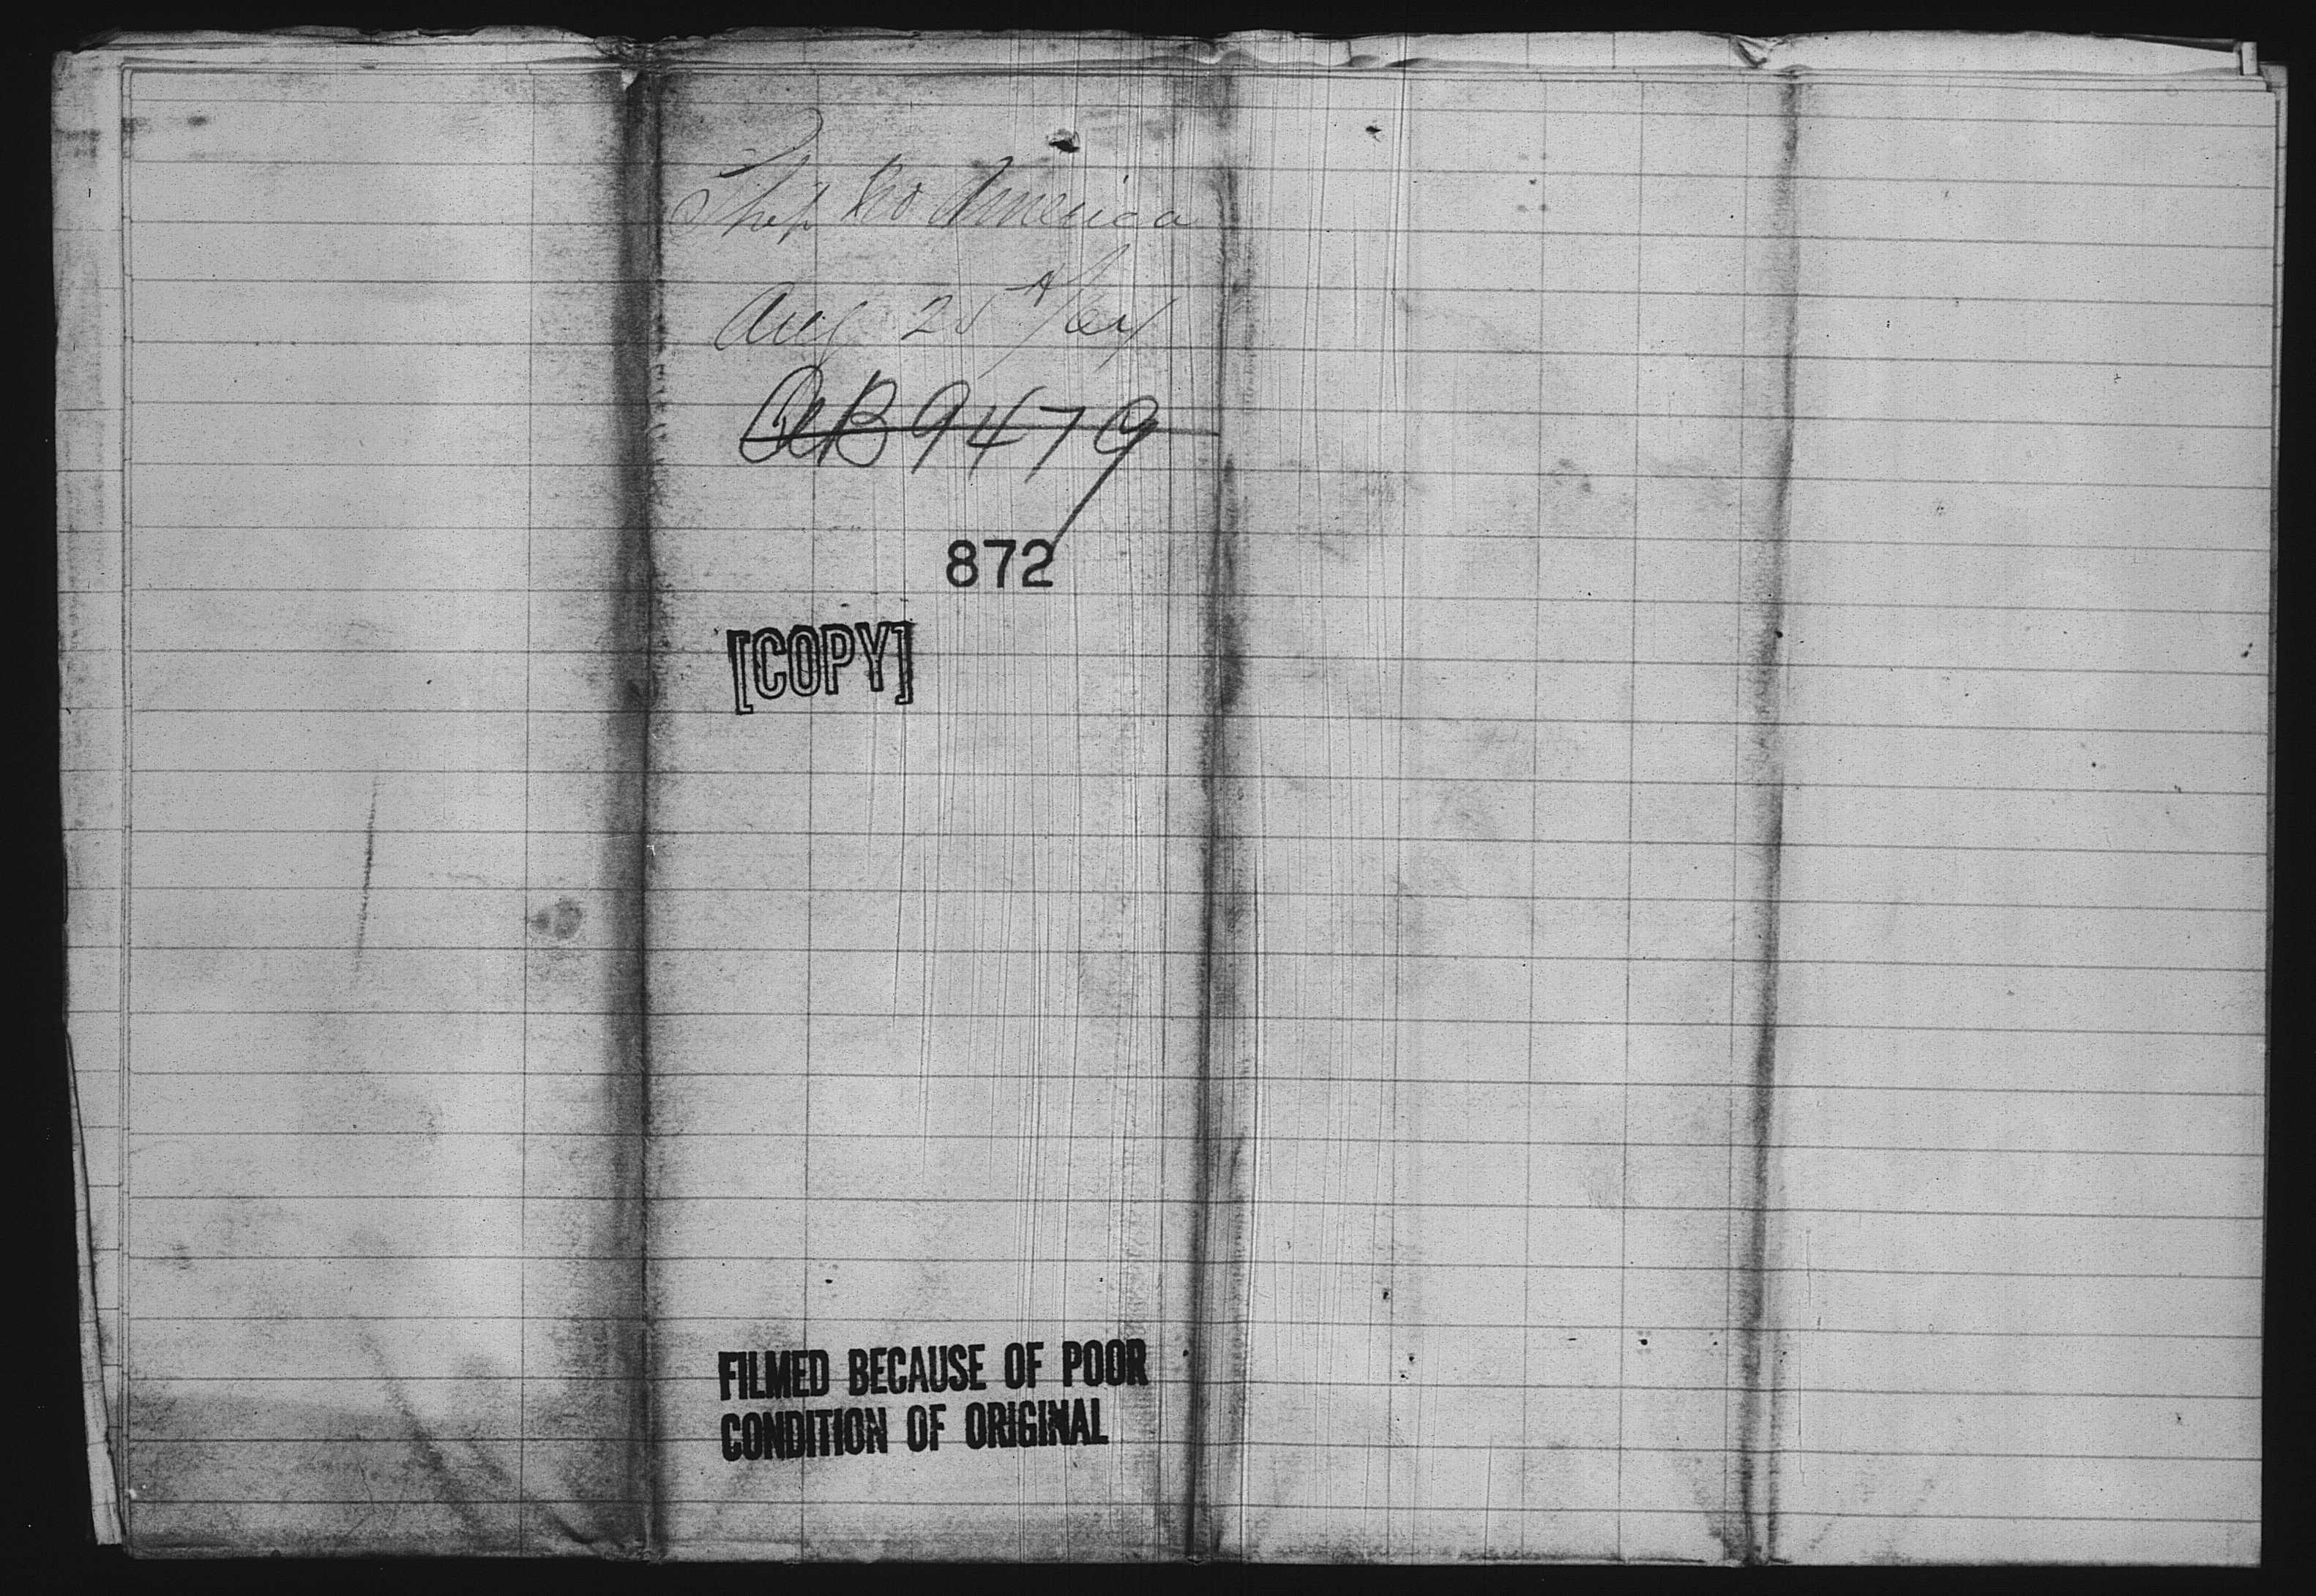 Ship No America
Aug 25th/64
AB 9479
872
[COPY]
FILMED BECAUSE OF POOR
CONDITION OF ORIGINAL